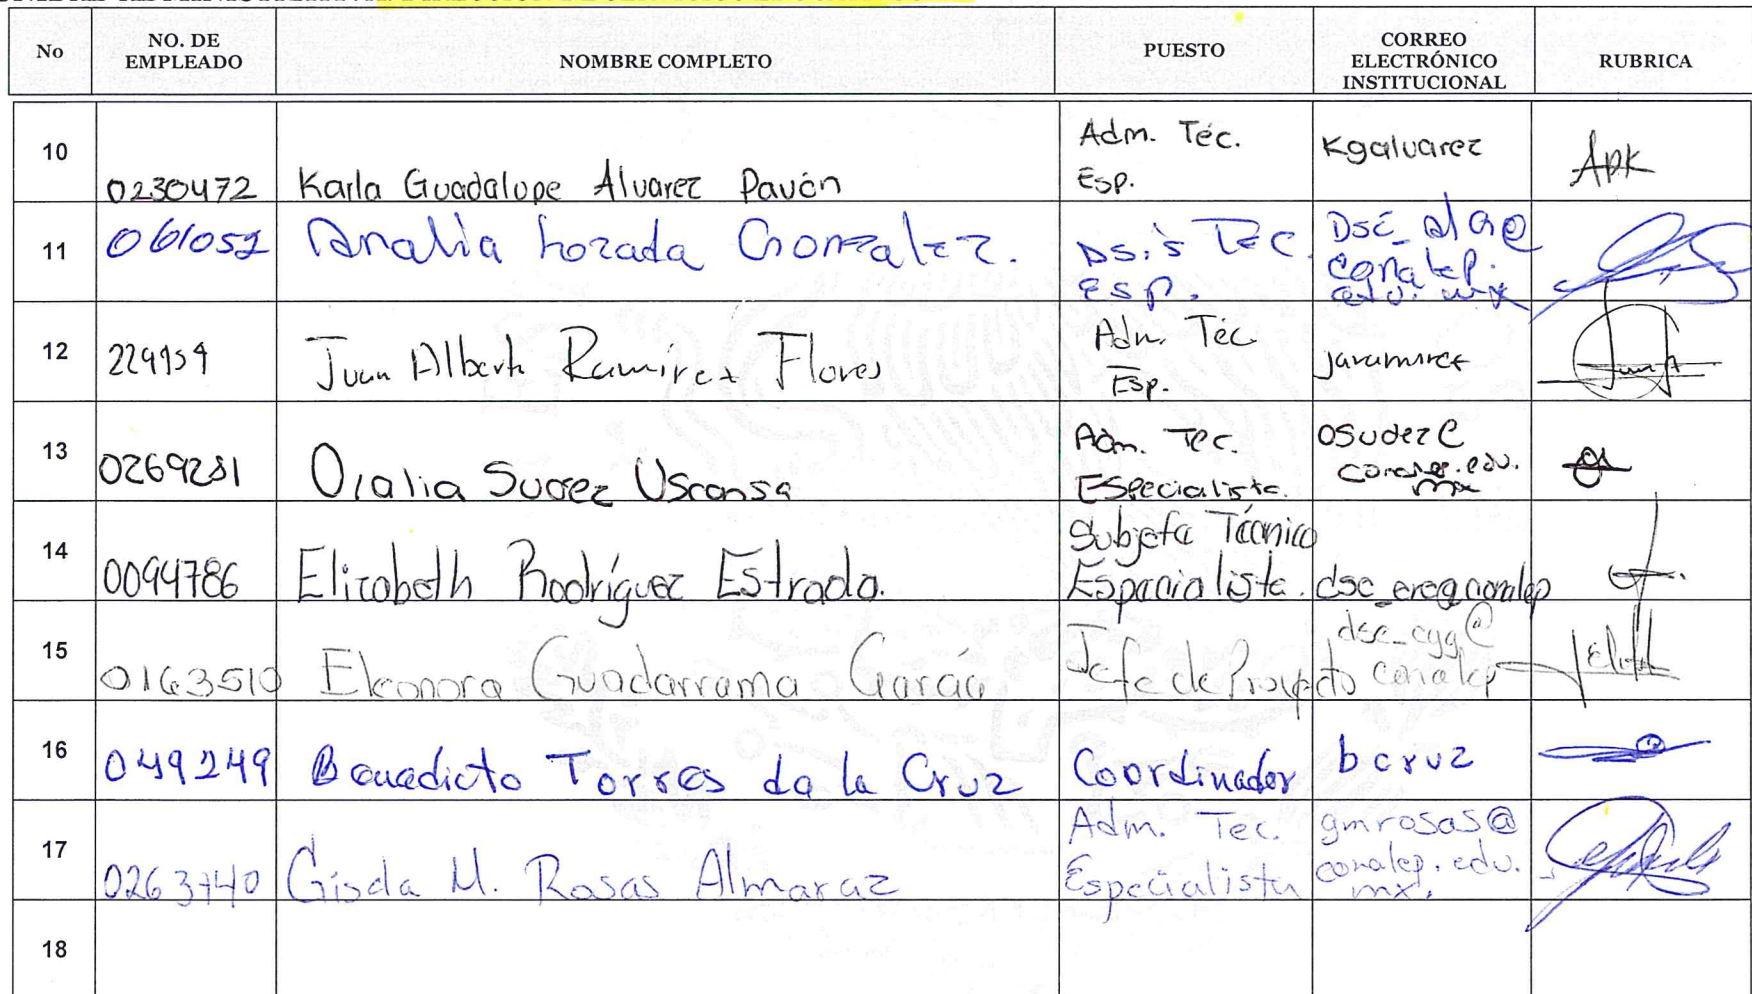 No NO. DE EMPLEADO NOMBRE COMPLETO PUESTO CORREO ELECTRÓNICO INSTITUCIONAL RUBRICA
10 0230472 Karla Guadalupe Alvarez Pavón Adm. Téc. Esp. Kgalvarez APK
11 061052 Analia Lozada Gonzalez. Tec. Esp. conalep.edu.mx
12 Juan Alberto Ramírez Flores Adm. Téc. Esp. jaramirez
13 0269281 Oralia Suarez Uscanga Adm. Tec. Especialista. osuarez@conalep.edu.mx
14 0094786 Elizabeth Rodríguez Estrada. Subjefe Técnico Especialista. dsc_ere@conalep
15 0163510 Eleonora Guadarrama García Jefe de Proyecto dsc_egg@conalep
16 049249 Benedicto Torres de la Cruz Coordinador bcruz
17 0263740 Gisela M. Rosas Almaraz Adm. Tec. Especialista gmrosas@conalep.edu.mx.
18